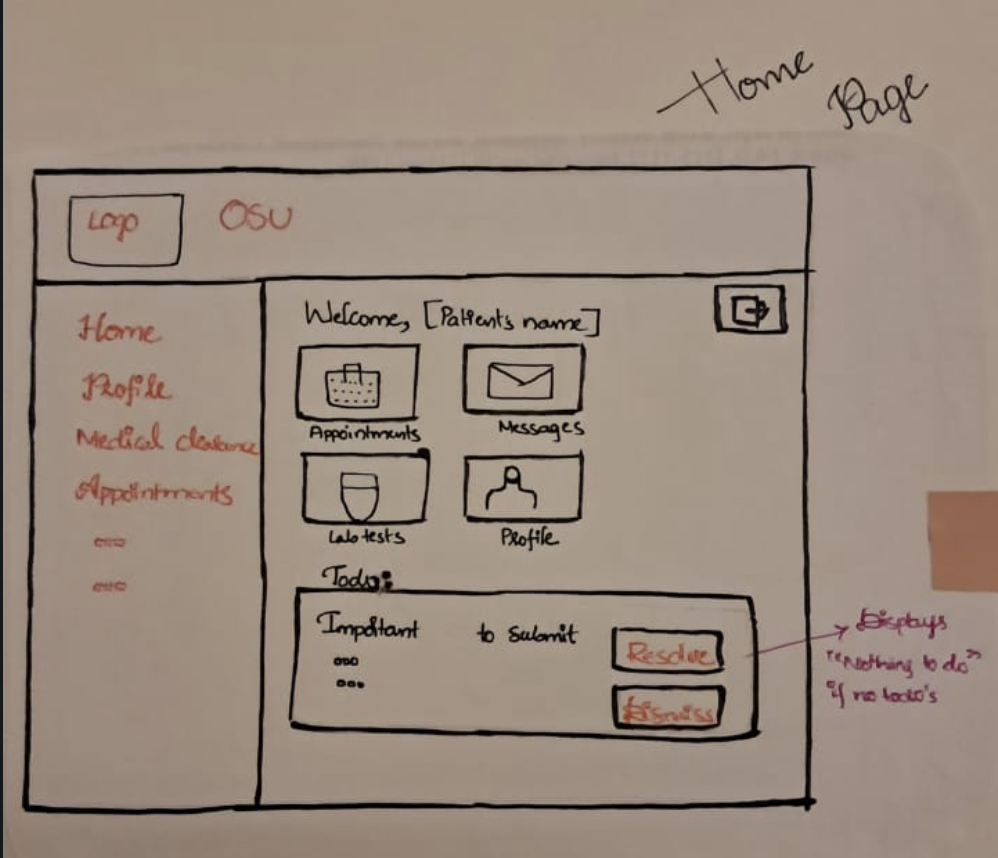 Home Page
Logo
OSU
Home
Profile
Medical clearance
Appointments
Welcome, [Patient's name]
Appointments
Messages
Lab tests
Profile
Todo:
Important to submit
Resolve
Dismiss
Displays
"Nothing to do"
if no todo's